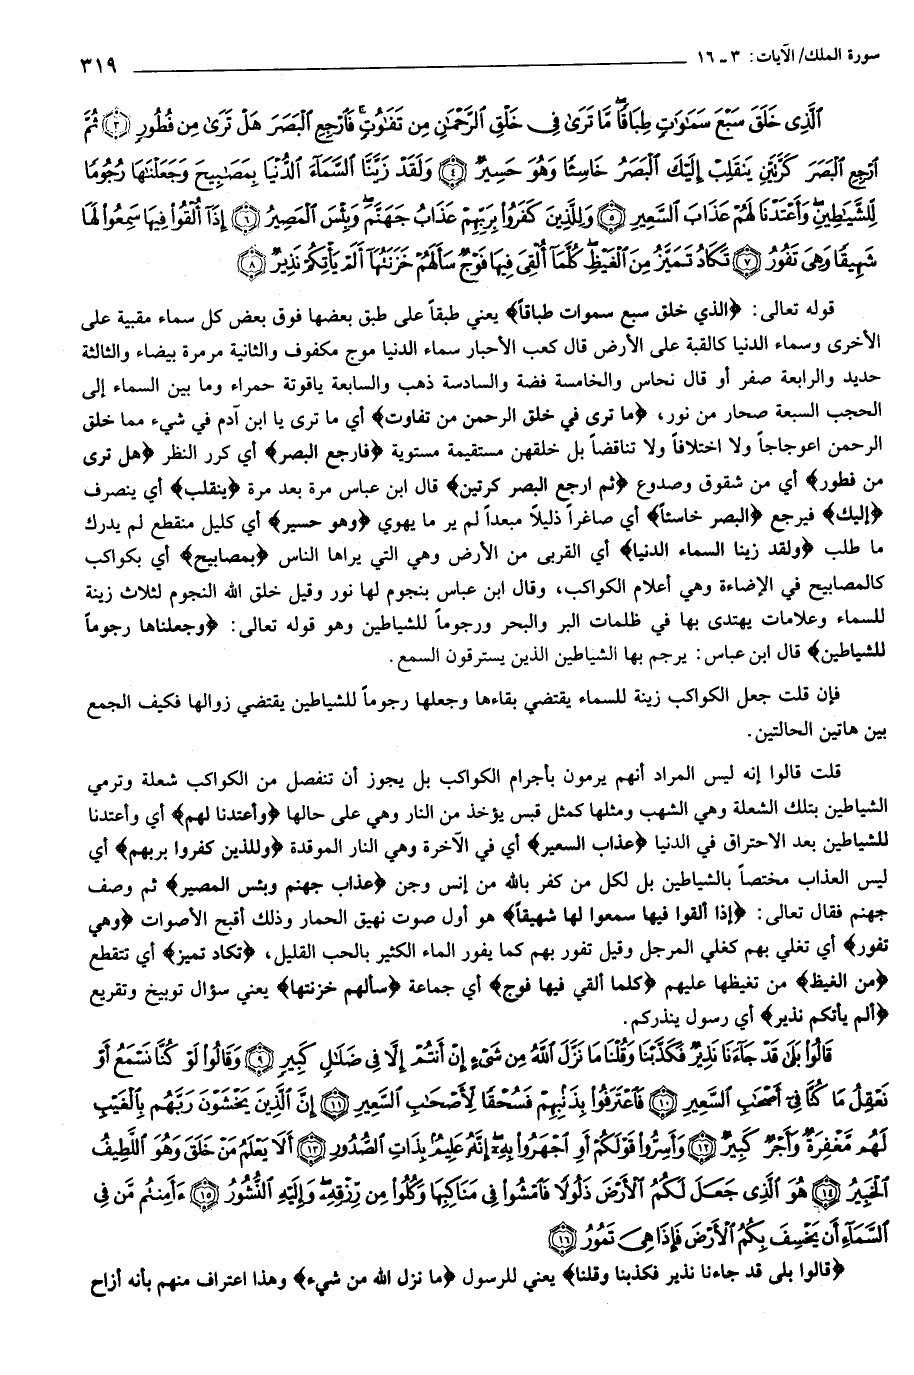 سورة الملك/ الآيات: ٣ ـ ١٦ ٣١٩
ٱلَّذِى خَلَقَ سَبْعَ سَمَٰوَٰتٍ طِبَاقًا ۖ مَّا تَرَىٰ فِى خَلْقِ ٱلرَّحْمَٰنِ مِن تَفَٰوُتٍ ۖ فَٱرْجِعِ ٱلْبَصَرَ هَلْ تَرَىٰ مِن فُطُورٍ ﴿٣﴾ ثُمَّ
ٱرْجِعِ ٱلْبَصَرَ كَرَّتَيْنِ يَنقَلِبْ إِلَيْكَ ٱلْبَصَرُ خَاسِئًا وَهُوَ حَسِيرٌ ﴿٤﴾ وَلَقَدْ زَيَّنَّا ٱلسَّمَآءَ ٱلدُّنْيَا بِمَصَٰبِيحَ وَجَعَلْنَٰهَا رُجُومًا
لِّلشَّيَٰطِينِ ۖ وَأَعْتَدْنَا لَهُمْ عَذَابَ ٱلسَّعِيرِ ﴿٥﴾ وَلِلَّذِينَ كَفَرُوا۟ بِرَبِّهِمْ عَذَابُ جَهَنَّمَ ۖ وَبِئْسَ ٱلْمَصِيرُ ﴿٦﴾ إِذَآ أُلْقُوا۟ فِيهَا سَمِعُوا۟ لَهَا
شَهِيقًا وَهِىَ تَفُورُ ﴿٧﴾ تَكَادُ تَمَيَّزُ مِنَ ٱلْغَيْظِ ۖ كُلَّمَآ أُلْقِىَ فِيهَا فَوْجٌ سَأَلَهُمْ خَزَنَتُهَآ أَلَمْ يَأْتِكُمْ نَذِيرٌ ﴿٨﴾
قوله تعالى: ﴿الذي خلق سبع سموات طباقاً﴾ يعني طبقاً على طبق بعضها فوق بعض كل سماء مقبية على
الأخرى وسماء الدنيا كالقبة على الأرض قال كعب الأحبار سماء الدنيا موج مكفوف والثانية مرمرة بيضاء والثالثة
حديد والرابعة صفر أو قال نحاس والخامسة فضة والسادسة ذهب والسابعة ياقوتة حمراء وما بين السماء إلى
الحجب السبعة صحار من نور، ﴿ما ترى في خلق الرحمن من تفاوت﴾ أي ما ترى يا ابن آدم في شيء مما خلق
الرحمن اعوجاجاً ولا اختلافاً ولا تناقضاً بل خلقهن مستقيمة مستوية ﴿فارجع البصر﴾ أي كرر النظر ﴿هل ترى
من فطور﴾ أي من شقوق وصدوع ﴿ثم ارجع البصر كرتين﴾ قال ابن عباس مرة بعد مرة ﴿ينقلب﴾ أي ينصرف
﴿إليك﴾ فيرجع ﴿البصر خاسئاً﴾ أي صاغراً ذليلاً مبعداً لم ير ما يهوي ﴿وهو حسير﴾ أي كليل منقطع لم يدرك
ما طلب ﴿ولقد زينا السماء الدنيا﴾ أي القربى من الأرض وهي التي يراها الناس ﴿بمصابيح﴾ أي بكواكب
كالمصابيح في الإضاءة وهي أعلام الكواكب، وقال ابن عباس بنجوم لها نور وقيل خلق الله النجوم لثلاث زينة
للسماء وعلامات يهتدى بها في ظلمات البر والبحر ورجوماً للشياطين وهو قوله تعالى: ﴿وجعلناها رجوماً
للشياطين﴾ قال ابن عباس: يرجم بها الشياطين الذين يسترقون السمع.
فإن قلت جعل الكواكب زينة للسماء يقتضي بقاءها وجعلها رجوماً للشياطين يقتضي زوالها فكيف الجمع
بين هاتين الحالتين.
قلت قالوا إنه ليس المراد أنهم يرمون بأجرام الكواكب بل يجوز أن تنفصل من الكواكب شعلة وترمي
الشياطين بتلك الشعلة وهي الشهب ومثلها كمثل قبس يؤخذ من النار وهي على حالها ﴿وأعتدنا لهم﴾ أي وأعتدنا
للشياطين بعد الاحتراق في الدنيا ﴿عذاب السعير﴾ أي في الآخرة وهي النار الموقدة ﴿وللذين كفروا بربهم﴾ أي
ليس العذاب مختصاً بالشياطين بل لكل من كفر بالله من إنس وجن ﴿عذاب جهنم وبئس المصير﴾ ثم وصف
جهنم فقال تعالى: ﴿إذا ألقوا فيها سمعوا لها شهيقاً﴾ هو أول صوت نهيق الحمار وذلك أقبح الأصوات ﴿وهي
تفور﴾ أي تغلي بهم كغلي المرجل وقيل تفور بهم كما يفور الماء الكثير بالحب القليل، ﴿تكاد تميز﴾ أي تتقطع
﴿من الغيظ﴾ من تغيظها عليهم ﴿كلما ألقي فيها فوج﴾ أي جماعة ﴿سألهم خزنتها﴾ يعني سؤال توبيخ وتقريع
﴿ألم يأتكم نذير﴾ أي رسول ينذركم.
قَالُوا۟ بَلَىٰ قَدْ جَآءَنَا نَذِيرٌ فَكَذَّبْنَا وَقُلْنَا مَا نَزَّلَ ٱللَّهُ مِن شَىْءٍ إِنْ أَنتُمْ إِلَّا فِى ضَلَٰلٍ كَبِيرٍ ﴿٩﴾ وَقَالُوا۟ لَوْ كُنَّا نَسْمَعُ أَوْ
نَعْقِلُ مَا كُنَّا فِىٓ أَصْحَٰبِ ٱلسَّعِيرِ ﴿١٠﴾ فَٱعْتَرَفُوا۟ بِذَنۢبِهِمْ فَسُحْقًا لِّأَصْحَٰبِ ٱلسَّعِيرِ ﴿١١﴾ إِنَّ ٱلَّذِينَ يَخْشَوْنَ رَبَّهُم بِٱلْغَيْبِ
لَهُم مَّغْفِرَةٌ وَأَجْرٌ كَبِيرٌ ﴿١٢﴾ وَأَسِرُّوا۟ قَوْلَكُمْ أَوِ ٱجْهَرُوا۟ بِهِۦٓ ۖ إِنَّهُۥ عَلِيمٌۢ بِذَاتِ ٱلصُّدُورِ ﴿١٣﴾ أَلَا يَعْلَمُ مَنْ خَلَقَ وَهُوَ ٱللَّطِيفُ
ٱلْخَبِيرُ ﴿١٤﴾ هُوَ ٱلَّذِى جَعَلَ لَكُمُ ٱلْأَرْضَ ذَلُولًا فَٱمْشُوا۟ فِى مَنَاكِبِهَا وَكُلُوا۟ مِن رِّزْقِهِۦ ۖ وَإِلَيْهِ ٱلنُّشُورُ ﴿١٥﴾ ءَأَمِنتُم مَّن فِى
ٱلسَّمَآءِ أَن يَخْسِفَ بِكُمُ ٱلْأَرْضَ فَإِذَا هِىَ تَمُورُ ﴿١٦﴾
﴿قالوا بلى قد جاءنا نذير فكذبنا وقلنا﴾ يعني للرسول ﴿ما نزل الله من شيء﴾ وهذا اعتراف منهم بأنه أزاح